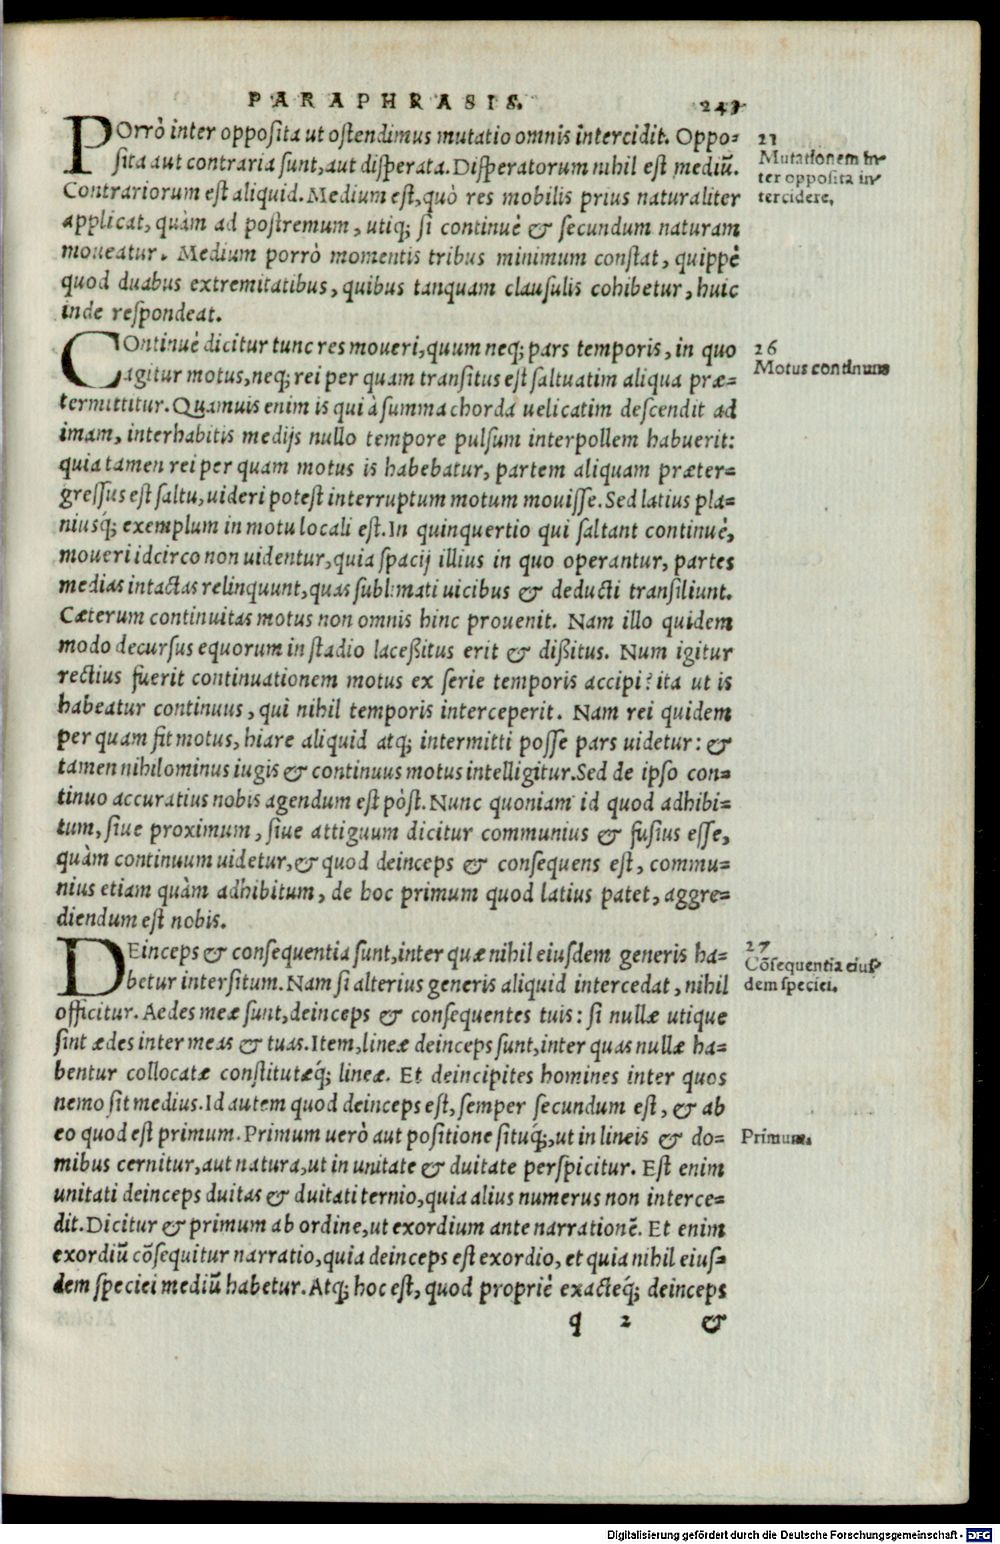 PARAPHRASIS. 243
POrrò inter opposita ut ostendimus mutatio omnis intercidit. Oppo-
sita aut contraria sunt, aut disperata. Disperatorum nihil est mediū.
Contrariorum est aliquid. Medium est, quò res mobilis prius naturaliter
applicat, quàm ad postremum, utiq; si continuè & secundum naturam
moueatur. Medium porrò momentis tribus minimum constat, quippè
quod duabus extremitatibus, quibus tanquam clausulis cohibetur, huic
inde respondeat.
Mutationem in-
ter opposita in-
tercidere.
COntinuè dicitur tunc res moueri, quum neq; pars temporis, in quo
agitur motus, neq; rei per quam transitus est saltuatim aliqua præ-
termittitur. Quamuis enim is qui à summa chorda uelicatim descendit ad
imam, interhabitis medijs nullo tempore pulsum interpollem habuerit:
quia tamen rei per quam motus is habebatur, partem aliquam præter-
gressus est saltu, uideri potest interruptum motum mouisse. Sed latius pla-
niusq́; exemplum in motu locali est. In quinquertio qui saltant continuè,
moueri idcirco non uidentur, quia spacij illius in quo operantur, partes
medias intactas relinquunt, quas sublimati uicibus & deducti transiliunt.
Cæterum continuitas motus non omnis hinc prouenit. Nam illo quidem
modo decursus equorum in stadio laceßitus erit & dißitus. Num igitur
rectius fuerit continuationem motus ex serie temporis accipi? ita ut is
habeatur continuus, qui nihil temporis interceperit. Nam rei quidem
per quam fit motus, hiare aliquid atq; intermitti posse pars uidetur: &
tamen nihilominus iugis & continuus motus intelligitur. Sed de ipso con-
tinuo accuratius nobis agendum est pòst. Nunc quoniam id quod adhibi-
tum, siue proximum, siue attiguum dicitur communius & fusius esse,
quàm continuum uidetur, & quod deinceps & consequens est, commu-
nius etiam quàm adhibitum, de hoc primum quod latius patet, aggre-
diendum est nobis.
26
Motus continuus
DEinceps & consequentia sunt, inter quæ nihil eiusdem generis ha-
betur intersitum. Nam si alterius generis aliquid intercedat, nihil
officitur. Aedes meæ sunt, deinceps & consequentes tuis: si nullæ utique
sint ædes inter meas & tuas. Item, lineæ deinceps sunt, inter quas nullæ ha-
bentur collocatæ constitutæq́; lineæ. Et deincipites homines inter quos
nemo sit medius. Id autem quod deinceps est, semper secundum est, & ab
eo quod est primum. Primum uerò aut positione situq́;, ut in lineis & do-
mibus cernitur, aut natura, ut in unitate & duitate perspicitur. Est enim
unitati deinceps duitas & duitati ternio, quia alius numerus non interce-
dit. Dicitur & primum ab ordine, ut exordium ante narrationē. Et enim
exordiū cōsequitur narratio, quia deinceps est exordio, et quia nihil eius-
dem speciei mediū habetur. Atq; hoc est, quod propriè exacteq́; deinceps
27
Cōsequentia eius-
dem speciei.
Primum.
q 2 &
Digitalisierung gefördert durch die Deutsche Forschungsgemeinschaft - DFG